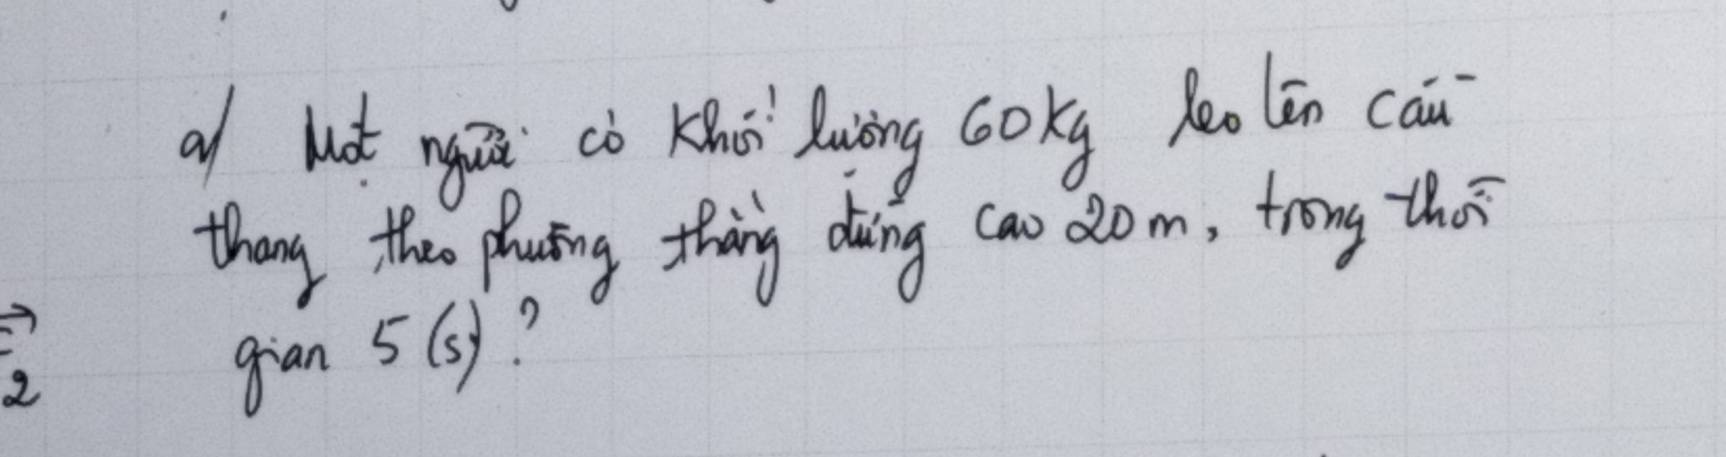 a/ Một người có khối lượng 60kg leo lên cầu
thang theo phương thẳng đứng cao 20m, trong thời
gian 5 (s)?
2